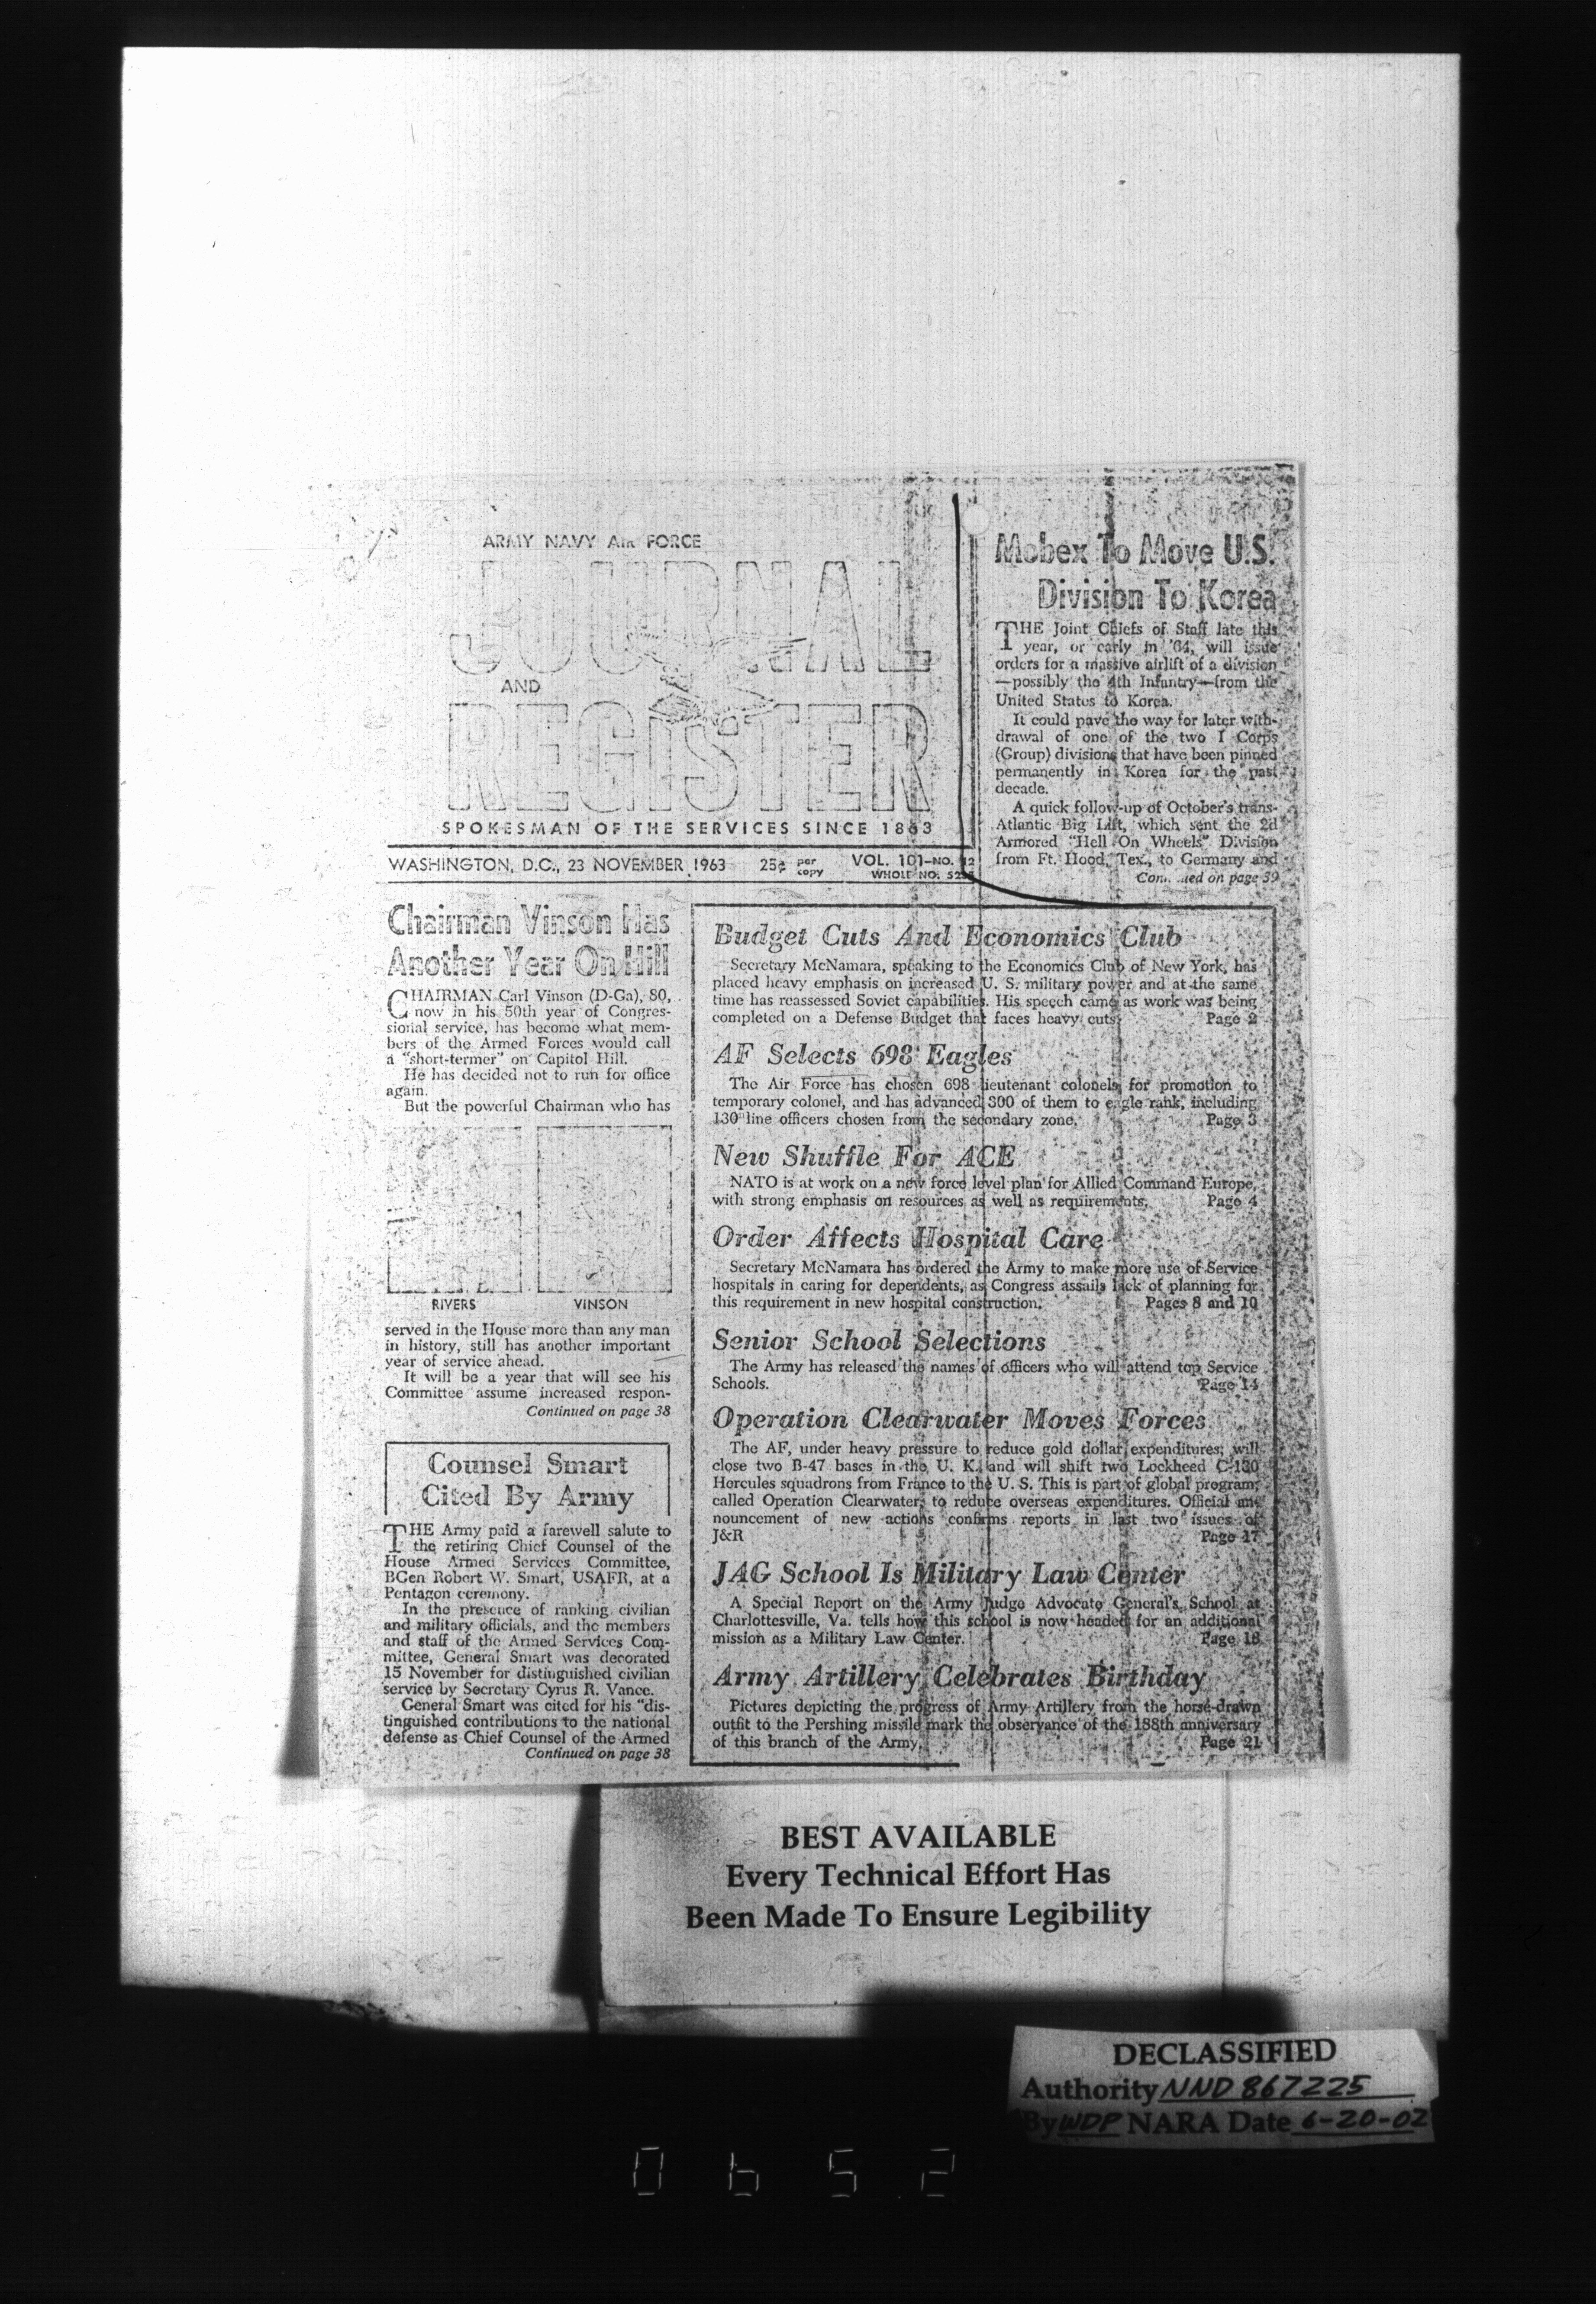 ARMY NAVY AIR FORCE
JOURNAL
AND
REGISTER
SPOKESMAN OF THE SERVICES SINCE 1863
WASHINGTON, D.C., 23 NOVEMBER 1963 25¢ per copy VOL. 101—NO. 12
WHOLE NO.
Mobex To Move U.S.
Division To Korea
THE Joint Chiefs of Staff late this
year, or early in '64, will issue
orders for a massive airlift of a division
—possibly the 4th Infantry—from the
United States to Korea.
It could pave the way for later with-
drawal of one of the two I Corps
(Group) divisions that have been pinned
permanently in Korea for the past
decade.
A quick follow-up of October's trans-
Atlantic Big Lift, which sent the 2d
Armored "Hell On Wheels" Division
from Ft. Hood, Tex., to Germany and
on page 39
Chairman Vinson Has
Another Year On Hill
CHAIRMAN Carl Vinson (D-Ga), 80,
now in his 50th year of Congres-
sional service, has become what mem-
bers of the Armed Forces would call
a "short-termer" on Capitol Hill.
He has decided not to run for office
again.
But the powerful Chairman who has
RIVERS VINSON
served in the House more than any man
in history, still has another important
year of service ahead.
It will be a year that will see his
Committee assume increased respon-
Continued on page 38
Counsel Smart
Cited By Army
THE Army paid a farewell salute to
the retiring Chief Counsel of the
House Armed Services Committee,
BGen Robert W. Smart, USAFR, at a
Pentagon ceremony.
In the presence of ranking civilian
and military officials, and the members
and staff of the Armed Services Com-
mittee, General Smart was decorated
15 November for distinguished civilian
service by Secretary Cyrus R. Vance.
General Smart was cited for his "dis-
tinguished contributions to the national
defense as Chief Counsel of the Armed
Continued on page 38
Budget Cuts And Economics Club
Secretary McNamara, speaking to the Economics Club of New York, has
placed heavy emphasis on increased U. S. military power and at the same
time has reassessed Soviet capabilities. His speech came as work was being
completed on a Defense Budget that faces heavy cuts. Page 2
AF Selects 698 Eagles
The Air Force has chosen 698 lieutenant colonels for promotion to
temporary colonel, and has advanced 300 of them to eagle rank, including
130 line officers chosen from the secondary zone. Page 3
New Shuffle For ACE
NATO is at work on a new force level plan for Allied Command Europe,
with strong emphasis on resources as well as requirements. Page 4
Order Affects Hospital Care
Secretary McNamara has ordered the Army to make more use of Service
hospitals in caring for dependents, as Congress assails lack of planning for
this requirement in new hospital construction. Pages 8 and 10
Senior School Selections
The Army has released the names of officers who will attend top Service
Schools. Page 14
Operation Clearwater Moves Forces
The AF, under heavy pressure to reduce gold dollar expenditures, will
close two B-47 bases in the U. K. and will shift two Lockheed C-130
Hercules squadrons from France to the U. S. This is part of global program,
called Operation Clearwater, to reduce overseas expenditures. Official an-
nouncement of new actions confirms reports in last two issues of
J&R Page 17
JAG School Is Military Law Center
A Special Report on the Army Judge Advocate General's School at
Charlottesville, Va. tells how this school is now headed for an additional
mission as a Military Law Center. Page 18
Army Artillery Celebrates Birthday
Pictures depicting the progress of Army Artillery from the horse-drawn
outfit to the Pershing missile mark the observance of the 188th anniversary
of this branch of the Army. Page 21
BEST AVAILABLE
Every Technical Effort Has
Been Made To Ensure Legibility
DECLASSIFIED
Authority NND 867225
By WDP NARA Date 6-20-02
0652